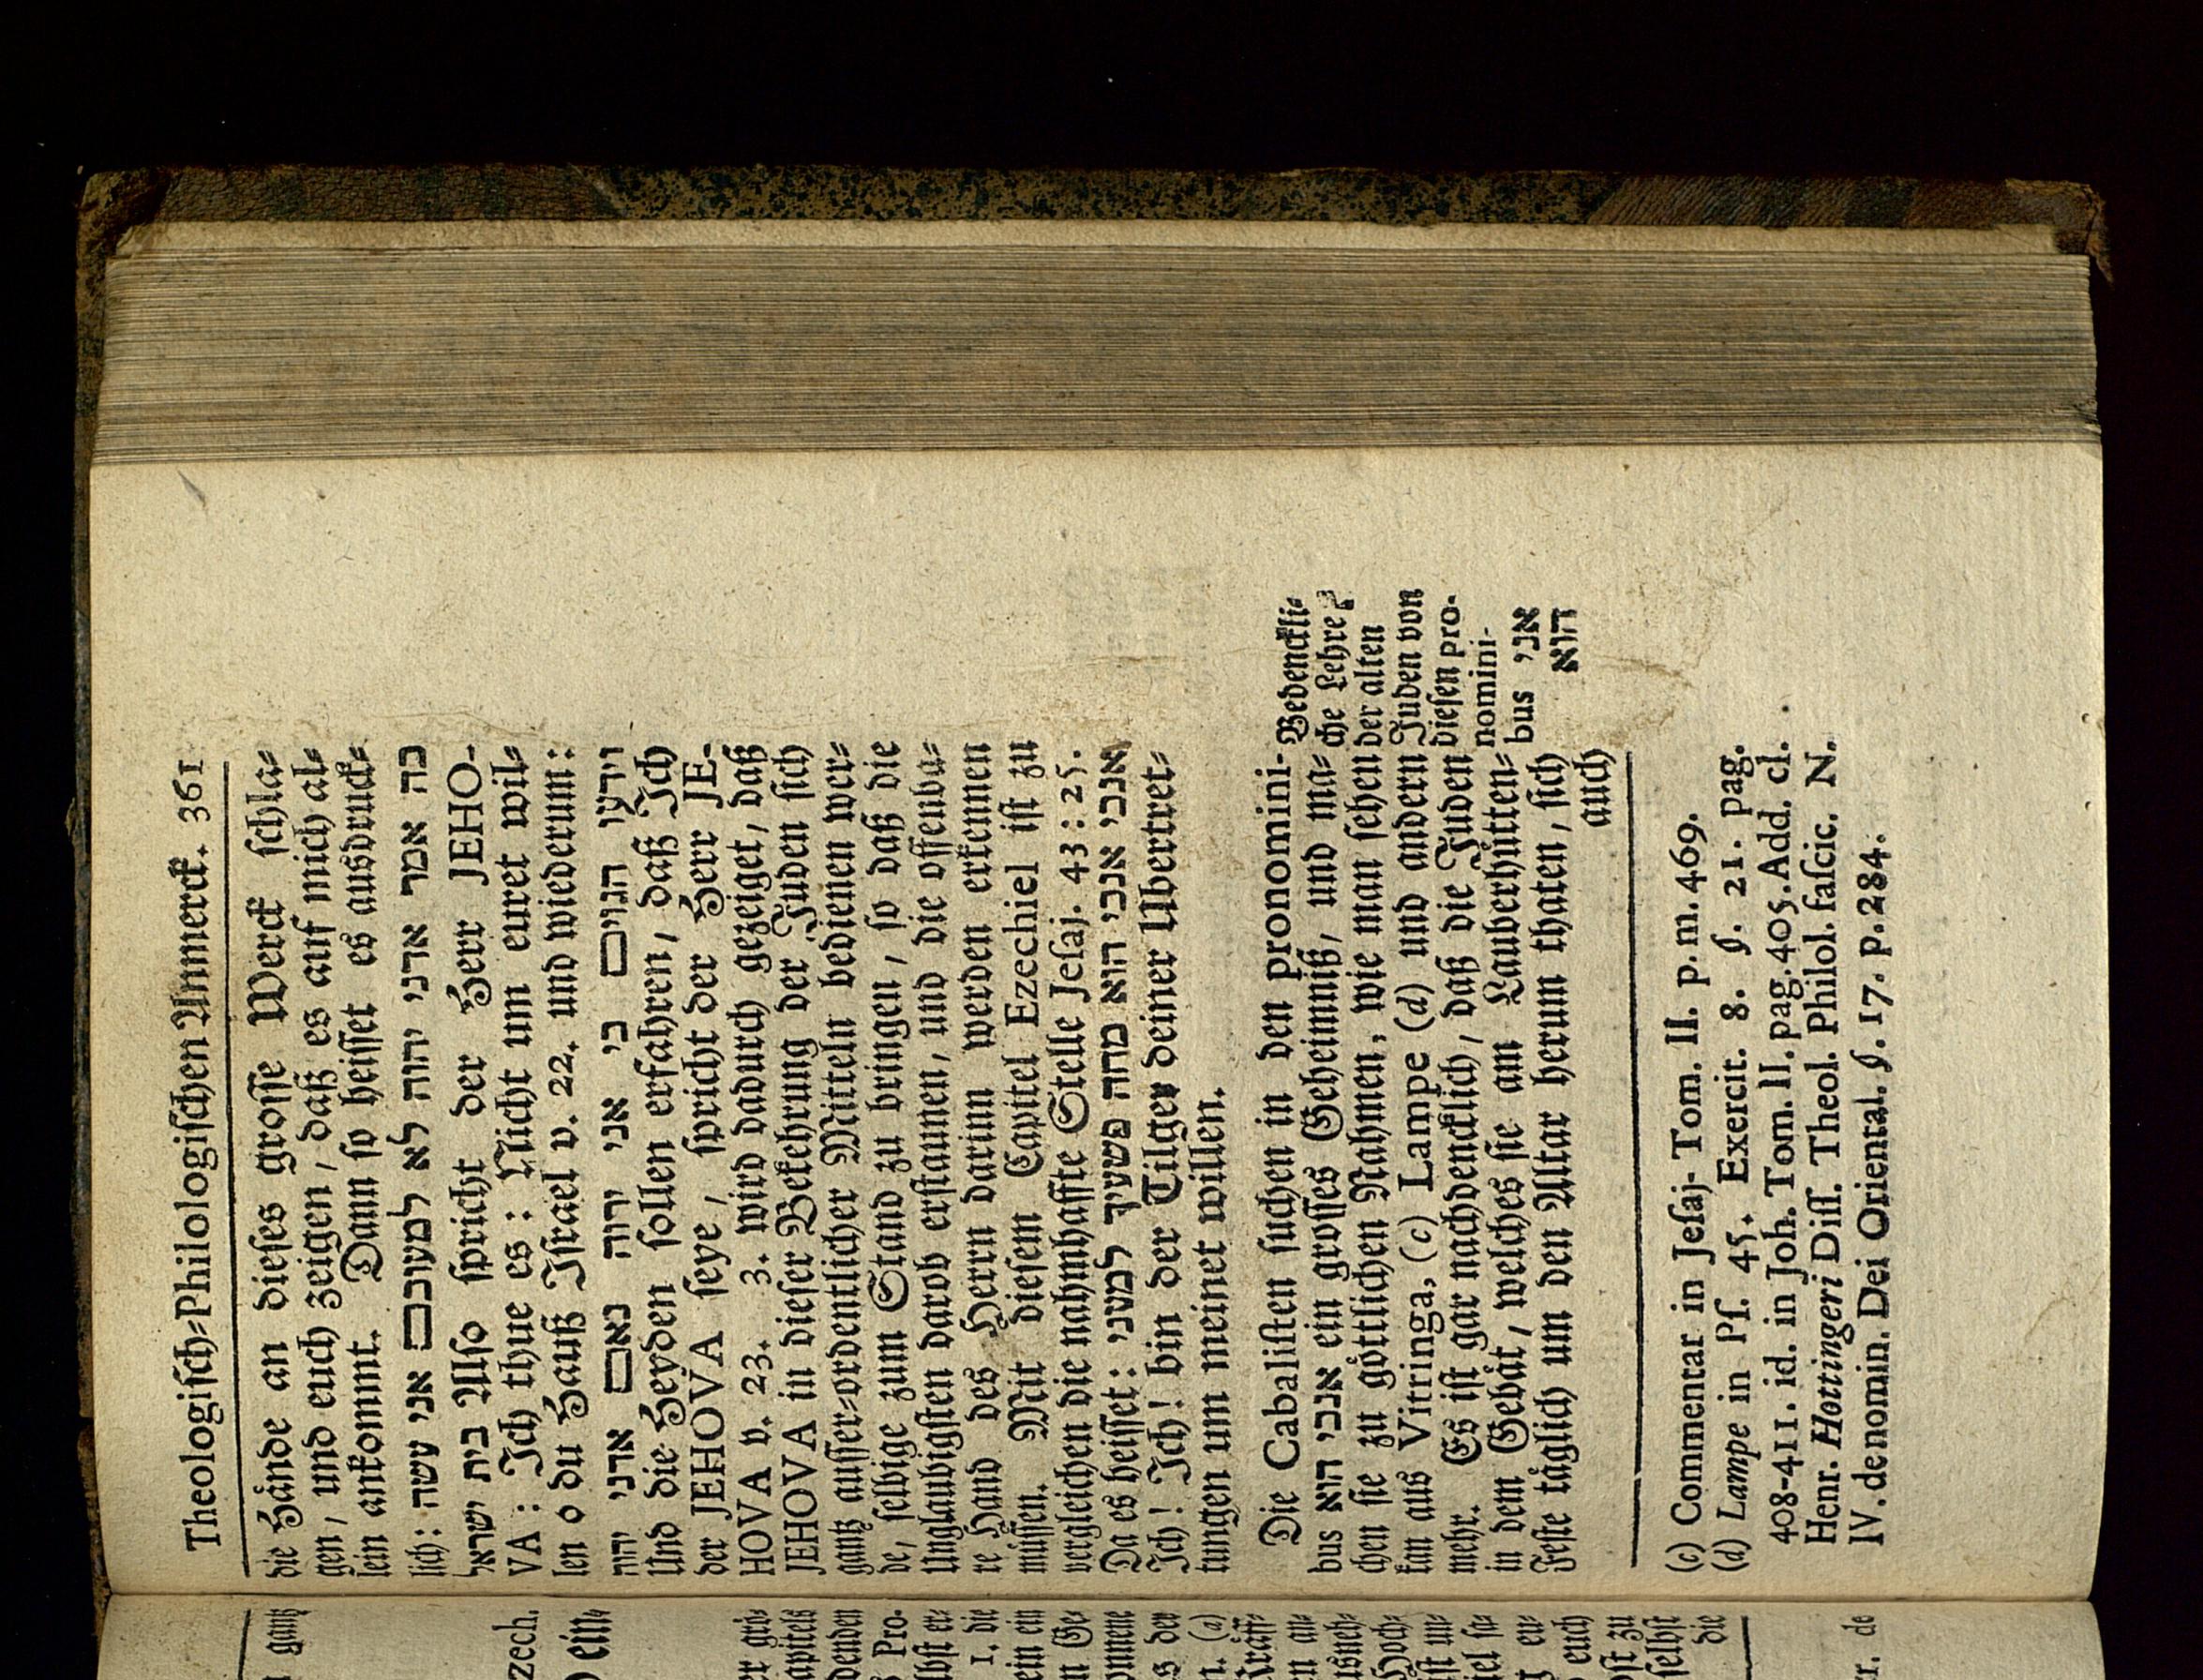 Theologiſch-Philologiſchen Anmerck. 361
die Hände an dieſes groſſe Werck ſchla-
gen, und euch zeigen, daß es auf mich al-
lein ankommt. Dann ſo heiſſet es ausdruck-
lich: כה אמר ארני יהוה לא למענכם אני עשה
בית ישראל Alſo ſpricht der Herr JEHO-
VA: Ich thue es: Nicht um euret wil-
len o du Hauß Iſrael v. 22. und wiederum:
וידעו הגוים כי אני יהוה נאם ארני יהוה
Und die Heyden ſollen erfahren, daß Ich
der JEHOVA ſeye, ſpricht der Herr JE-
HOVA v. 23. 3. wird dadurch gezeiget, daß
JEHOVA in dieſer Bekehrung der Juden ſich
gantz auſſer-ordentlicher Mitteln bedienen wer-
de, ſelbige zum Stand zu bringen, ſo daß die
Unglaubigſten darob erſtaunen, und die offenba-
re Hand des Herrn darinn werden erkennen
müſſen. Mit dieſem Capittel Ezechiel iſt zu
vergleichen die nahmhaffte Stelle Jeſaj. 43: 25.
Da es heiſſet: אנכי אנכי הוא מחה פשעיך למעני
Ich! Ich! bin der Tilger deiner Ubertret-
tungen um meinet willen.
Die Cabaliſten ſuchen in den pronomini-
bus אנכי הוא ein groſſes Geheimniß, und ma-
chen ſie zu göttlichen Nahmen, wie man ſehen
kan aus Vitringa, (c) Lampe (d) und andern
mehr. Es iſt gar nachdencklich, daß die Juden
in dem Gebät, welches ſie am Lauberhütten-
Feſte täglich um den Altar herum thaten, ſich
auch
Bedenckli-
che Lehre
der alten
Juden von
dieſen pro-
nomini-
bus אני
הוא
(c) Commentar in Jeſaj. Tom. II. p. m. 469.
(d) Lampe in Pſ. 45. Exercit. 8. §. 21. pag.
408-411. id. in Joh. Tom. II. pag. 405. Add. cl.
Henr. Hottingeri Diſſ. Theol. Philol. faſcic. N.
IV. de nomin. Dei Oriental. §. 17. p. 284.
gantz
zech.
ein-
apitels
denden
Pro-
lbſt er-
1. die
ein en
n Ge-
s der
n. (a)
Kräff-
n an-
Hoch-
euch
ſelbſt
die
de